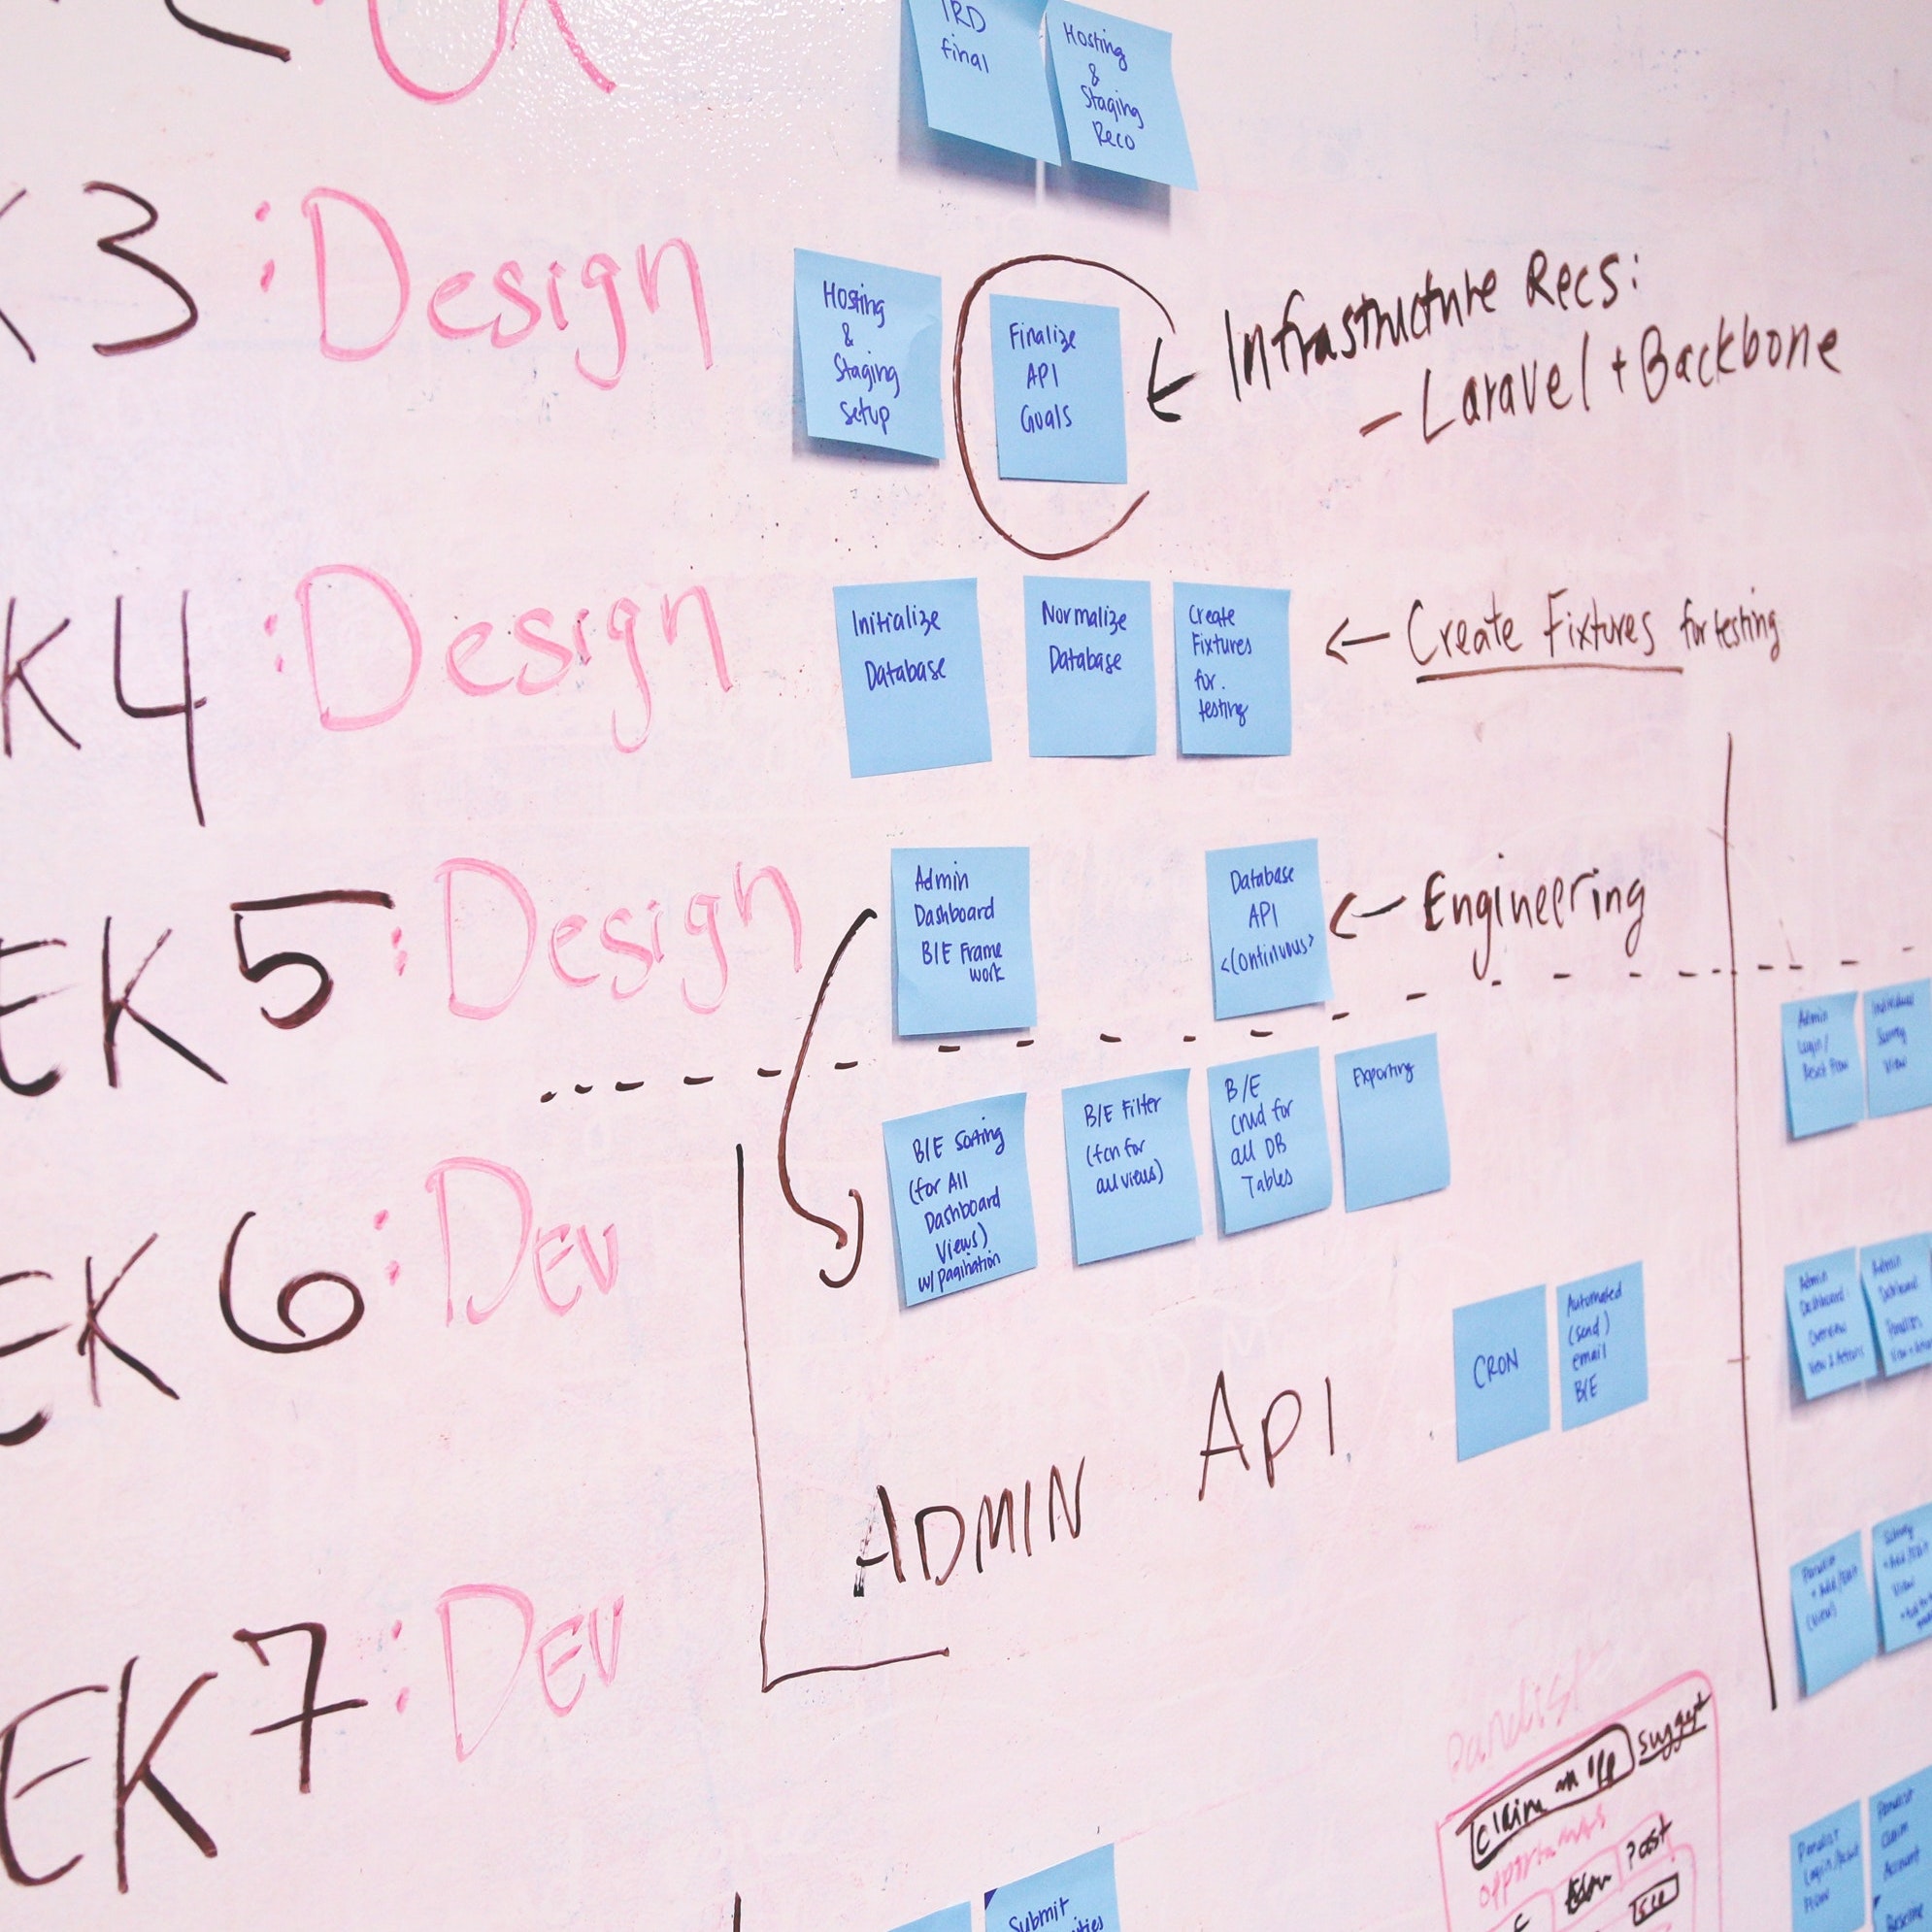 TRD
final
Hosting
&
Staging
Reco
K3 : Design
Hosting
&
Staging
Setup
Finalize
API
Goals
← Infrastructure Recs:
- Laravel + Backbone
K4 : Design
Initialize
Database
Normalize
Database
Create
Fixtures
for.
testing
← Create Fixtures for testing
EK 5 : Design
Admin
Dashboard
B/E Frame
work
Database
API
<Continuous>
← Engineering
EK 6 : DEV
B/E Sorting
(for All
Dashboard
Views)
w/ pagination
B/E Filter
(fcn for
all views)
B/E
Crud for
all DB
Tables
Exporting
CRON
Automated
(send)
email
B/E
ADMIN API
EK 7 : DEV
Admin
Login/
Reset Flow
Individual
Survey
View
Admin
Dashboard
Overview
Admin
Dashboard
Panelist
+ Add/Edit
(view)
Survey
+ Add/Edit
View
panelist
Claim an opp
suggest
Past
Submit
Panelist
Panelist
Claim
Account